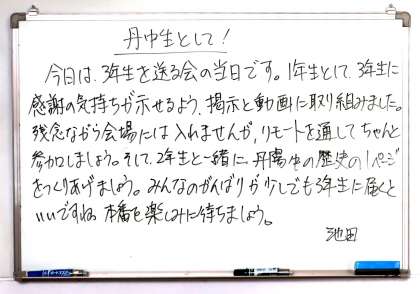 丹中生として!
今日は、3年生を送る会の当日です。1年生として、3年生に
感謝の気持ちが示せるよう、掲示と動画に取り組みました。
残念ながら会場には入れませんが、リモートを通してちゃんと
参加しましょう。そして、2年生と一緒に、丹陽中の歴史の1ページ
をつくりあげましょう。みんなのがんばりが少しでも3年生に届くと
いいですね。本番を楽しみに待ちましょう。
池田